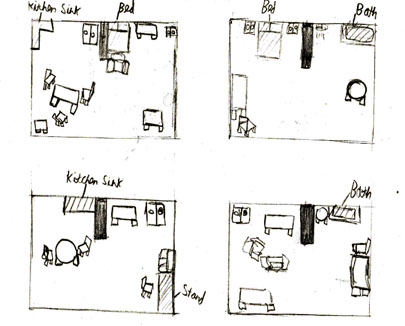 Kitchen Sink
Bed
Bed
Bath
Kitchen Sink
Bath
Stand